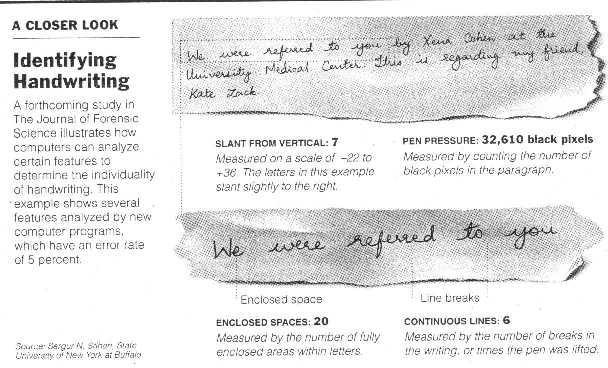 A CLOSER LOOK
Identifying
Handwriting
A forthcoming study in
The Journal of Forensic
Science illustrates how
computers can analyze
certain features to
determine the individuality
of handwriting. This
example shows several
features analyzed by new
computer programs,
which have an error rate
of 5 percent.
Source: N. Srihari, State
University of New York at Buffalo
We were referred to you by Xena Cohen at the
University Medical Center. This is regarding my friend,
Kate Zack
SLANT FROM VERTICAL: 7
Measured on a scale of –22 to
+36. The letters in this example
slant slightly to the right.
PEN PRESSURE: 32,610 black pixels
Measured by counting the number of
black pixels in the paragraph.
We were referred to you
Enclosed space
Line breaks
ENCLOSED SPACES: 20
Measured by the number of fully
enclosed areas within letters.
CONTINUOUS LINES: 6
Measured by the number of breaks in
the writing, or times the pen was lifted.